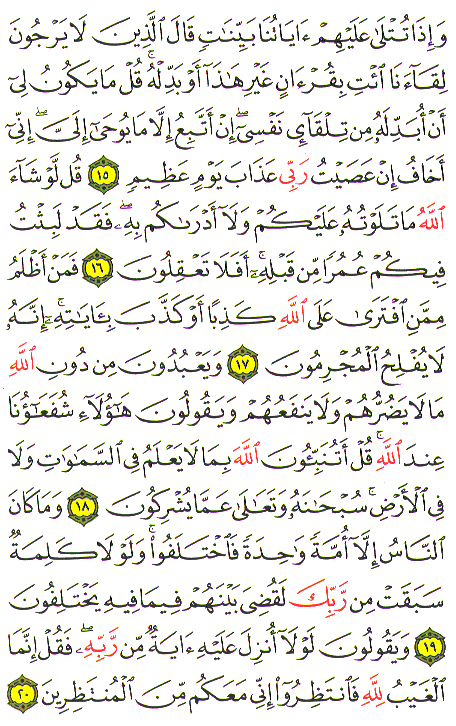 وَإِذَا تُتْلَىٰ عَلَيْهِمْ ءَايَاتُنَا بَيِّنَٰتٍ قَالَ ٱلَّذِينَ لَا يَرْجُونَ
لِقَآءَنَا ٱئْتِ بِقُرْءَانٍ غَيْرِ هَٰذَآ أَوْ بَدِّلْهُ ۚ قُلْ مَا يَكُونُ لِىٓ
أَنْ أُبَدِّلَهُۥ مِن تِلْقَآئِ نَفْسِىٓ ۖ إِنْ أَتَّبِعُ إِلَّا مَا يُوحَىٰٓ إِلَىَّ ۖ إِنِّىٓ
أَخَافُ إِنْ عَصَيْتُ رَبِّى عَذَابَ يَوْمٍ عَظِيمٍ ١٥ قُل لَّوْ شَآءَ
ٱللَّهُ مَا تَلَوْتُهُۥ عَلَيْكُمْ وَلَآ أَدْرَىٰكُم بِهِۦ ۖ فَقَدْ لَبِثْتُ
فِيكُمْ عُمُرًا مِّن قَبْلِهِۦٓ ۚ أَفَلَا تَعْقِلُونَ ١٦ فَمَنْ أَظْلَمُ
مِمَّنِ ٱفْتَرَىٰ عَلَى ٱللَّهِ كَذِبًا أَوْ كَذَّبَ بِـَٔايَٰتِهِۦٓ ۚ إِنَّهُۥ
لَا يُفْلِحُ ٱلْمُجْرِمُونَ ١٧ وَيَعْبُدُونَ مِن دُونِ ٱللَّهِ
مَا لَا يَضُرُّهُمْ وَلَا يَنفَعُهُمْ وَيَقُولُونَ هَٰٓؤُلَآءِ شُفَعَٰٓؤُنَا
عِندَ ٱللَّهِ ۚ قُلْ أَتُنَبِّـُٔونَ ٱللَّهَ بِمَا لَا يَعْلَمُ فِى ٱلسَّمَٰوَٰتِ وَلَا
فِى ٱلْأَرْضِ ۚ سُبْحَٰنَهُۥ وَتَعَٰلَىٰ عَمَّا يُشْرِكُونَ ١٨ وَمَا كَانَ
ٱلنَّاسُ إِلَّآ أُمَّةً وَٰحِدَةً فَٱخْتَلَفُوا۟ ۚ وَلَوْلَا كَلِمَةٌ
سَبَقَتْ مِن رَّبِّكَ لَقُضِىَ بَيْنَهُمْ فِيمَا فِيهِ يَخْتَلِفُونَ
١٩ وَيَقُولُونَ لَوْلَآ أُنزِلَ عَلَيْهِ ءَايَةٌ مِّن رَّبِّهِۦ ۖ فَقُلْ إِنَّمَا
ٱلْغَيْبُ لِلَّهِ فَٱنتَظِرُوٓا۟ إِنِّى مَعَكُم مِّنَ ٱلْمُنتَظِرِينَ ٢٠